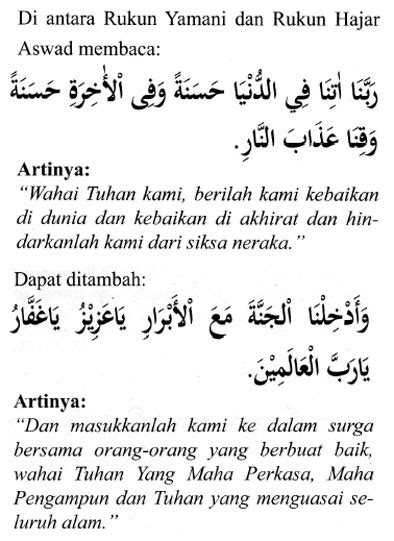 Di antara Rukun Yamani dan Rukun Hajar
Aswad membaca:
رَبَّنَا اٰتِنَا فِي الدُّنْيَا حَسَنَةً وَفِى اْلأٰخِرَةِ حَسَنَةً
وَقِنَا عَذَابَ النَّارِ.
Artinya:
“Wahai Tuhan kami, berilah kami kebaikan
di dunia dan kebaikan di akhirat dan hin-
darkanlah kami dari siksa neraka.”
Dapat ditambah:
وَأَدْخِلْنَا اْلجَنَّةَ مَعَ اْلأَبْرَارِ يَاعَزِيْزُ يَاغَفَّارُ
يَارَبَّ الْعَالَمِيْنَ.
Artinya:
“Dan masukkanlah kami ke dalam surga
bersama orang-orang yang berbuat baik,
wahai Tuhan Yang Maha Perkasa, Maha
Pengampun dan Tuhan yang menguasai se-
luruh alam.”